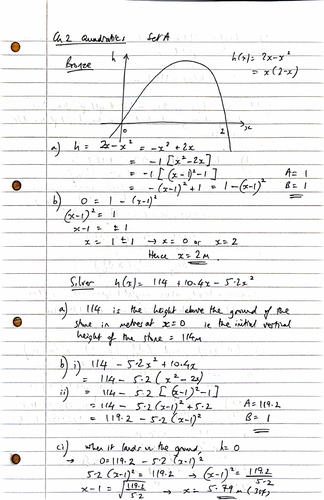 Ch 2 Quadratics Set A
Bronze
h
h(x) = 2x - x²
= x(2-x)
0
2
x
a) h = 2x - x² = -x² + 2x
= -1 [x² - 2x]
= -1 [(x-1)² - 1]
= -(x-1)² + 1 = 1 - (x-1)²
A = 1
B = 1
b) 0 = 1 - (x-1)²
(x-1)² = 1
x-1 = ±1
x = 1 ± 1 → x = 0 or x = 2
Hence x = 2m
Silver h(x) = 114 + 10.4x - 5.2x²
a) 114 is the height above the ground of the
stone in metres at x=0 ie the initial vertical
height of the stone = 114m
b) i) 114 - 5.2x² + 10.4x
= 114 - 5.2 (x² - 2x)
ii) = 114 - 5.2 [(x-1)² - 1]
= 114 - 5.2 (x-1)² + 5.2
= 119.2 - 5.2 (x-1)²
A = 119.2
B = 1
ci) when it lands on the ground, h = 0
→ 0 = 119.2 - 5.2 (x-1)²
5.2 (x-1)² = 119.2 → (x-1)² = 119.2/5.2
x-1 = √119.2/5.2 → x = 5.79 m (3sf)